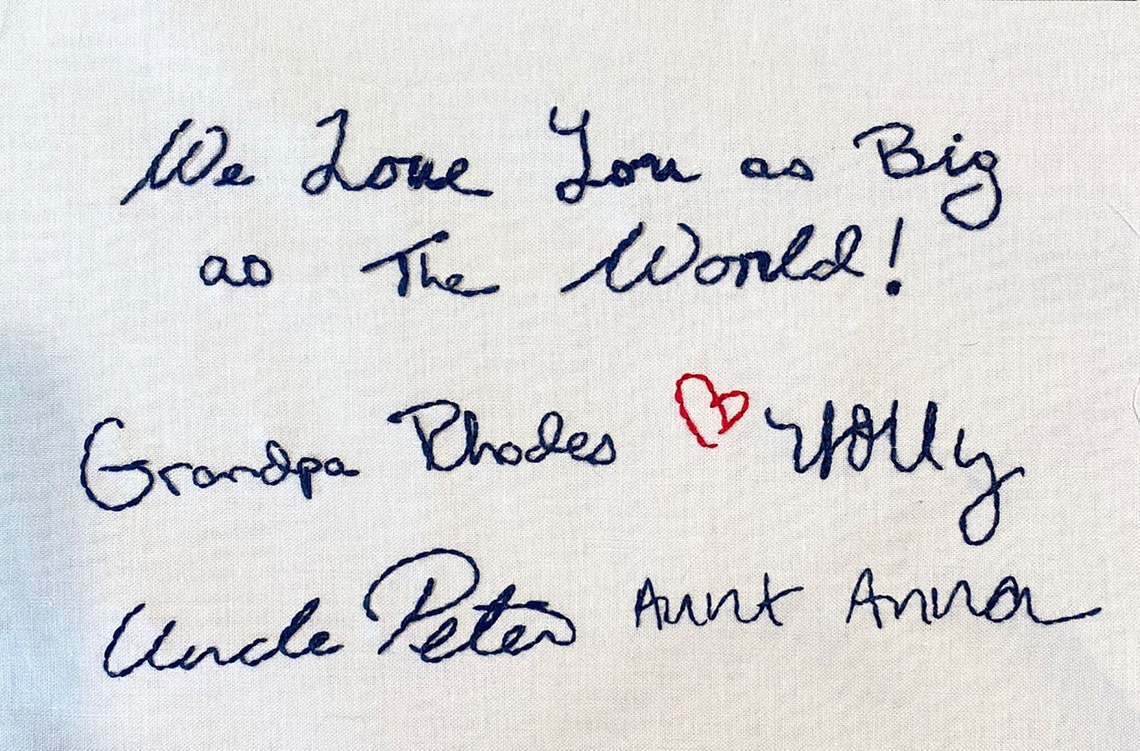 We Love You as Big
as The World!
Grandpa Rhodes ♡ Holly
Uncle Peter Aunt Anna